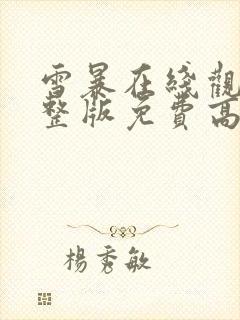 雪暴在綫觀
整版免費高
楊秀敏